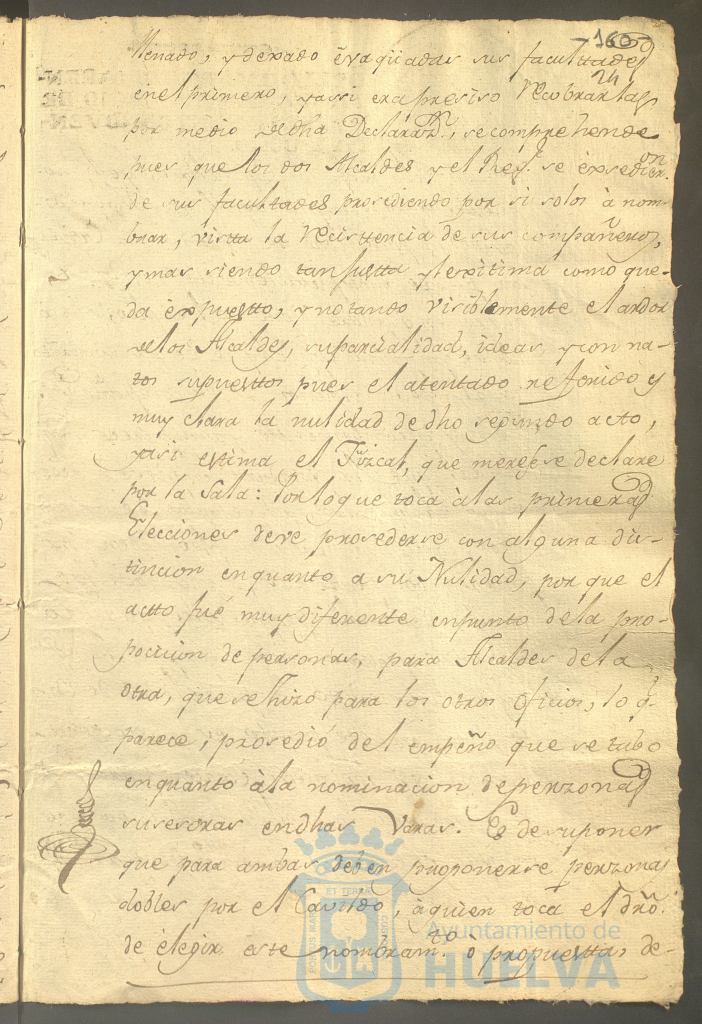 160
24
llenado, y dexado evaquadas sus facultades
en el primero, y assi era presiso recobrarlas
por medio de dha Declarazn., se comprehende
pues que los dos Alcaldes y el Rexr. se exsedieron
de sus facultades prosediendo por si solos à nom-
brar, vistta la recisttencia de sus compañeros,
y mas siendo tan justta y lexitima como que-
da expuestto, y notando visiblemente el ardor
de los Alcaldes, su parcialidad, ideas, y con na-
tos supuesttos pues el atentado referido y
muy clara la nulidad de dho segundo acto,
y asi estima el Fiscal, que merese se declare
por la Sala: Por lo que toca à las primeras
Elecciones deve prosederse con alguna dis-
tincion en quanto a su Nulidad, por que el
actto fué muy diferente en punto de la pro-
pocicion de personas, para Alcaldes de la
otra, que se hizo para los otros oficios, lo q.
parece, prosedio del empeño que se tubo
en quanto à la nominacion de perzonas
susesoras en dhas Varas. Es de suponer
que para ambas deben proponerse perzonas
dobles por el Cavildo, à quien toca el dro.
de elegir este nombramto. o propuestta, de-
Ayuntamiento de
HUELVA